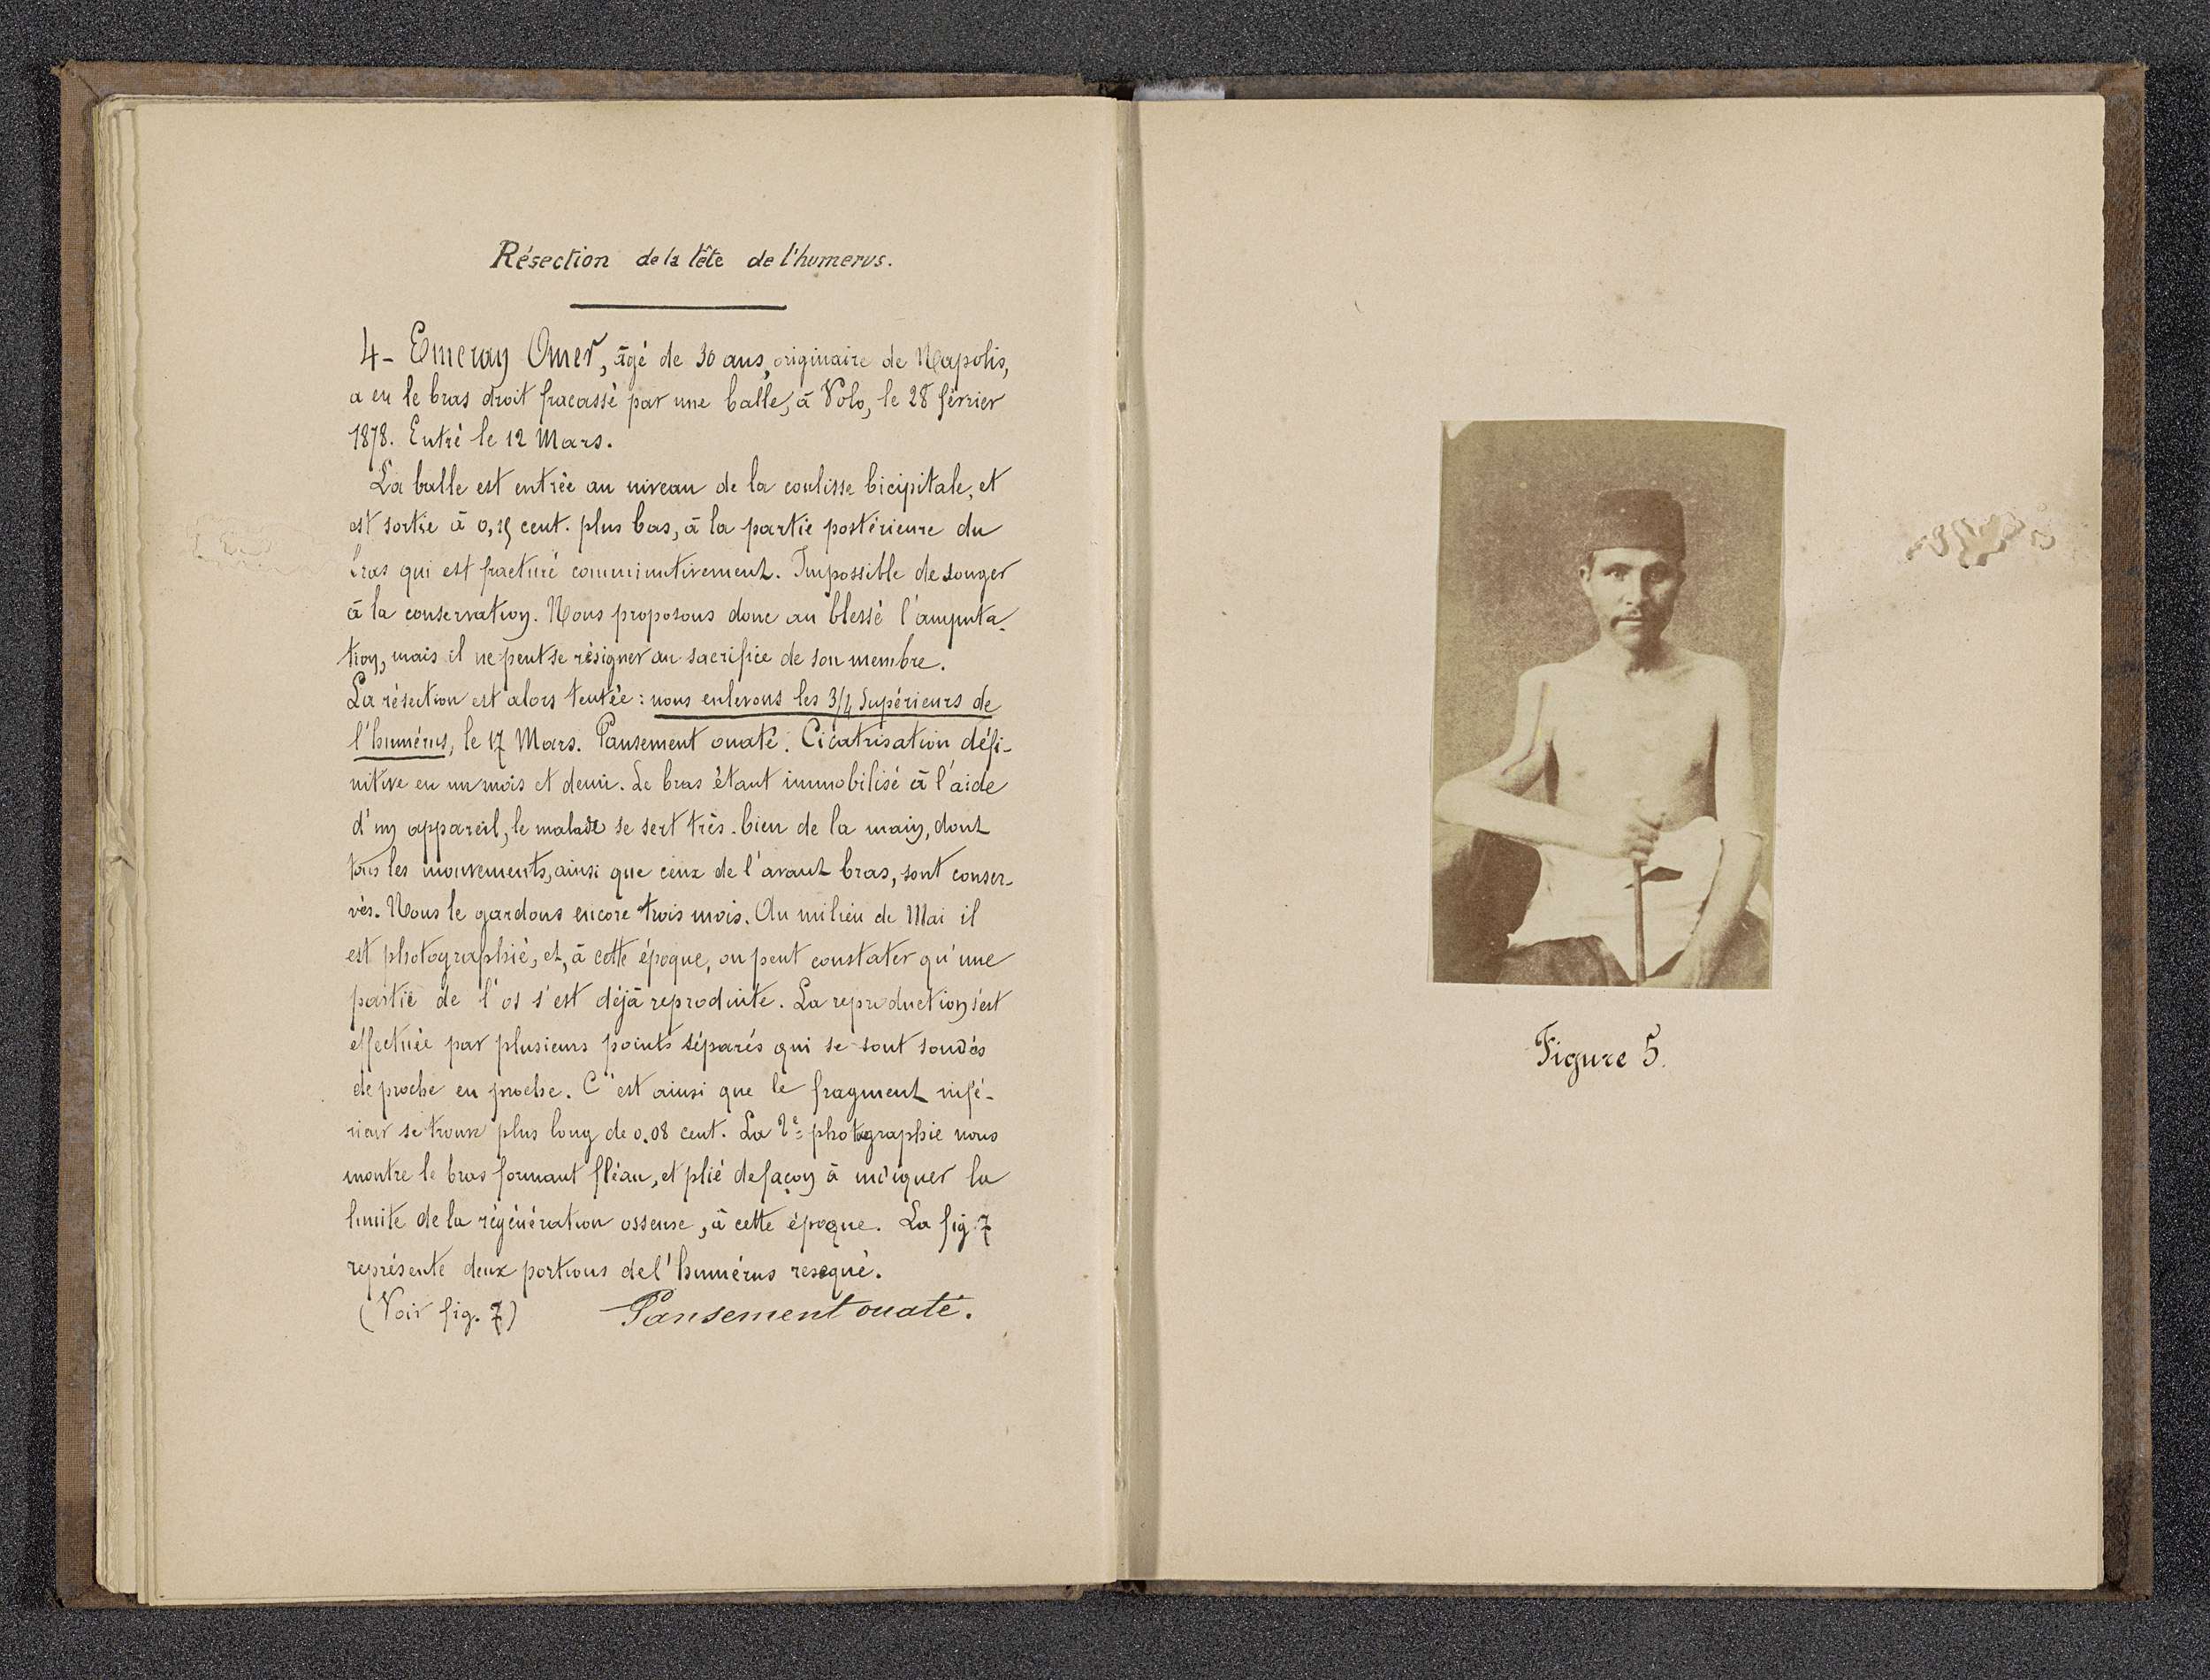 Résection de la tête de l'humerus.
4- Emeray Omer, âgé de 30 ans, originaire de Napolis,
a eu le bras droit fracassé par une balle, à Volo, le 28 février
1878. Entré le 12 Mars.
La balle est entrée au niveau de la coulisse bicipitale, et
est sortie à 0,15 cent. plus bas, à la partie postérieure du
bras qui est fracturé comminutivement. Impossible de songer
à la conservation. Nous proposons donc au blessé l'amputa-
tion, mais il ne peut se résigner au sacrifice de son membre.
La résection est alors tentée : nous enlevons les 3/4 supérieurs de
l'humérus, le 17 Mars. Pansement ouaté. Cicatrisation défi-
nitive en un mois et demi. Le bras étant immobilisé à l'aide
d'un appareil, le malade se sert très-bien de la main, dont
tous les mouvements, ainsi que ceux de l'avant bras, sont conser-
vés. Nous le gardons encore trois mois. Au milieu de Mai il
est photographié, et, à cette époque, on peut constater qu'une
partie de l'os s'est déjà reproduite. La reproduction s'est
effectuée par plusieurs points séparés qui se sont soudés
de proche en proche. C'est ainsi que le fragment infé-
rieur se trouve plus long de 0.08 cent. La 2e photographie nous
montre le bras formant fléau, et plié de façon à indiquer la
limite de la régénération osseuse, à cette époque. La fig. 7
représente deux portions de l'humérus resequé.
(Voir fig. 7) Pansement ouaté.
Figure 5.